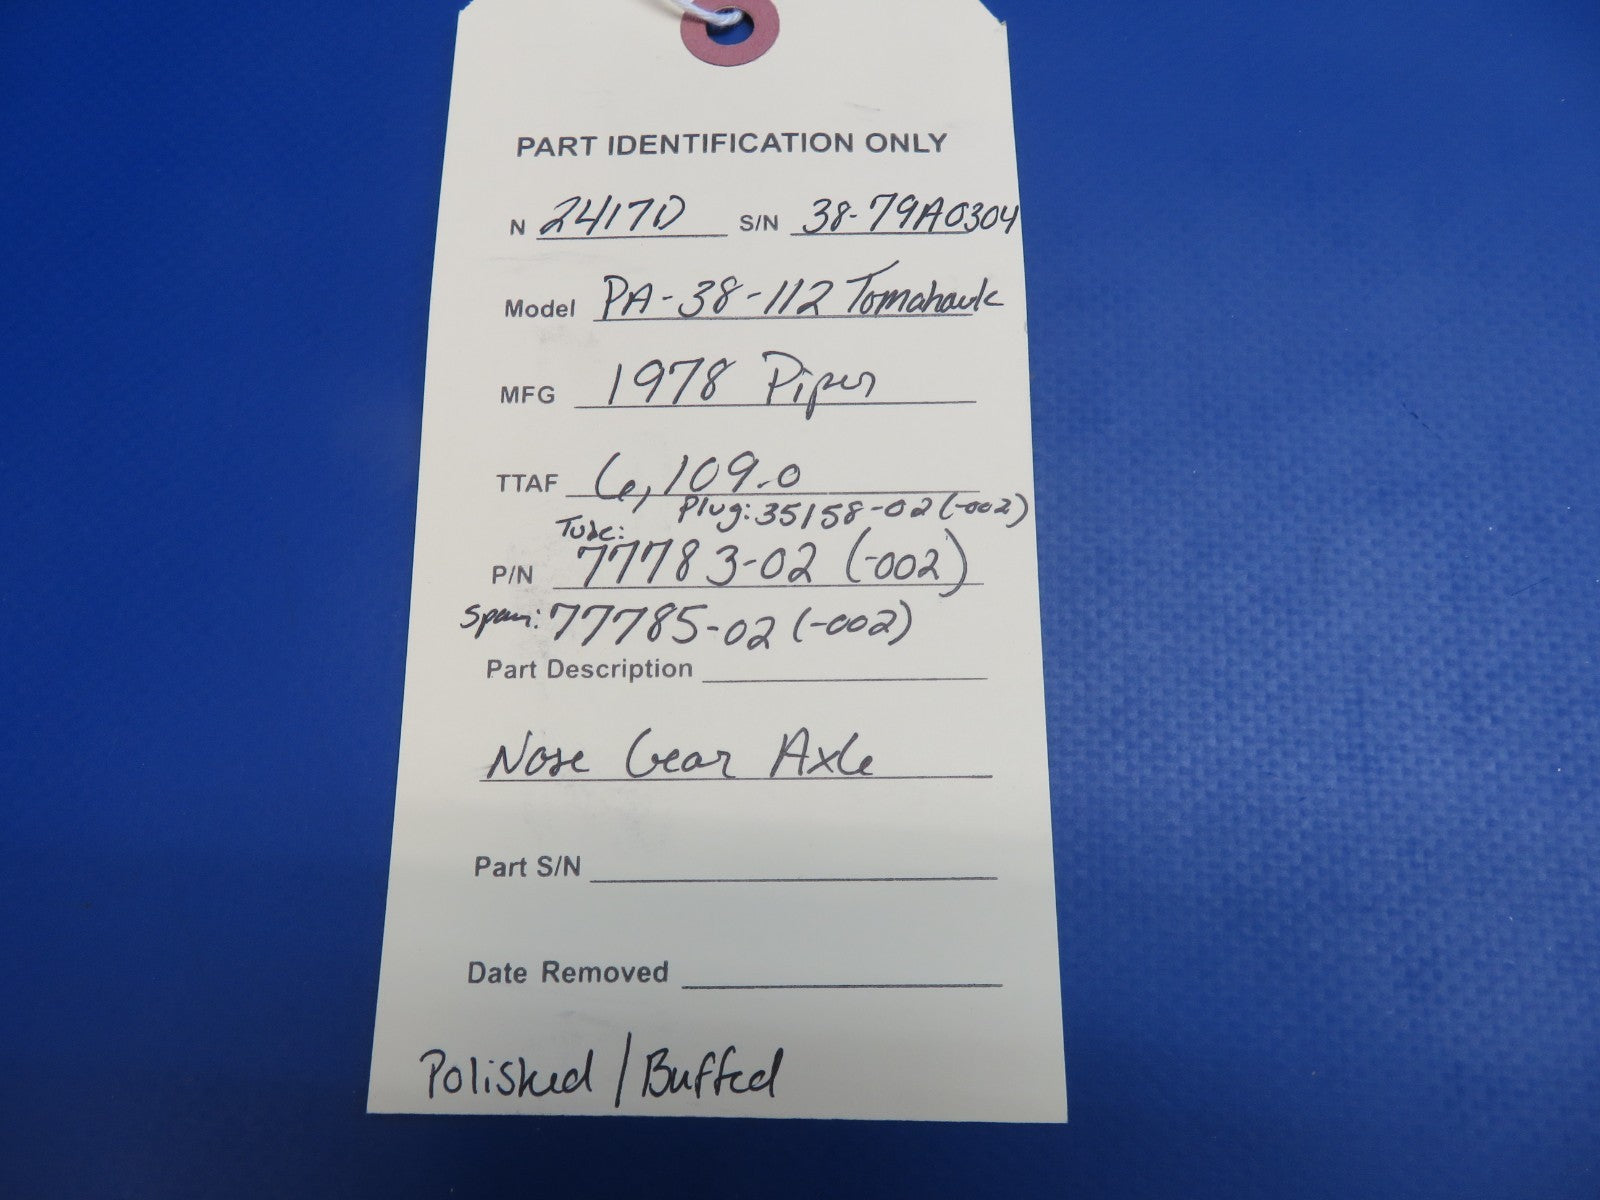 PART IDENTIFICATION ONLY
N 2417D S/N 38-79A0304
Model PA-38-112 Tomahawk
MFG 1978 Piper
TTAF 6,109.0
Plug: 35158-02 (-002)
Tube:
P/N 77783-02 (-002)
Spacer: 77785-02 (-002)
Part Description
Nose Gear Axle
Part S/N
Date Removed
Polished / Buffed